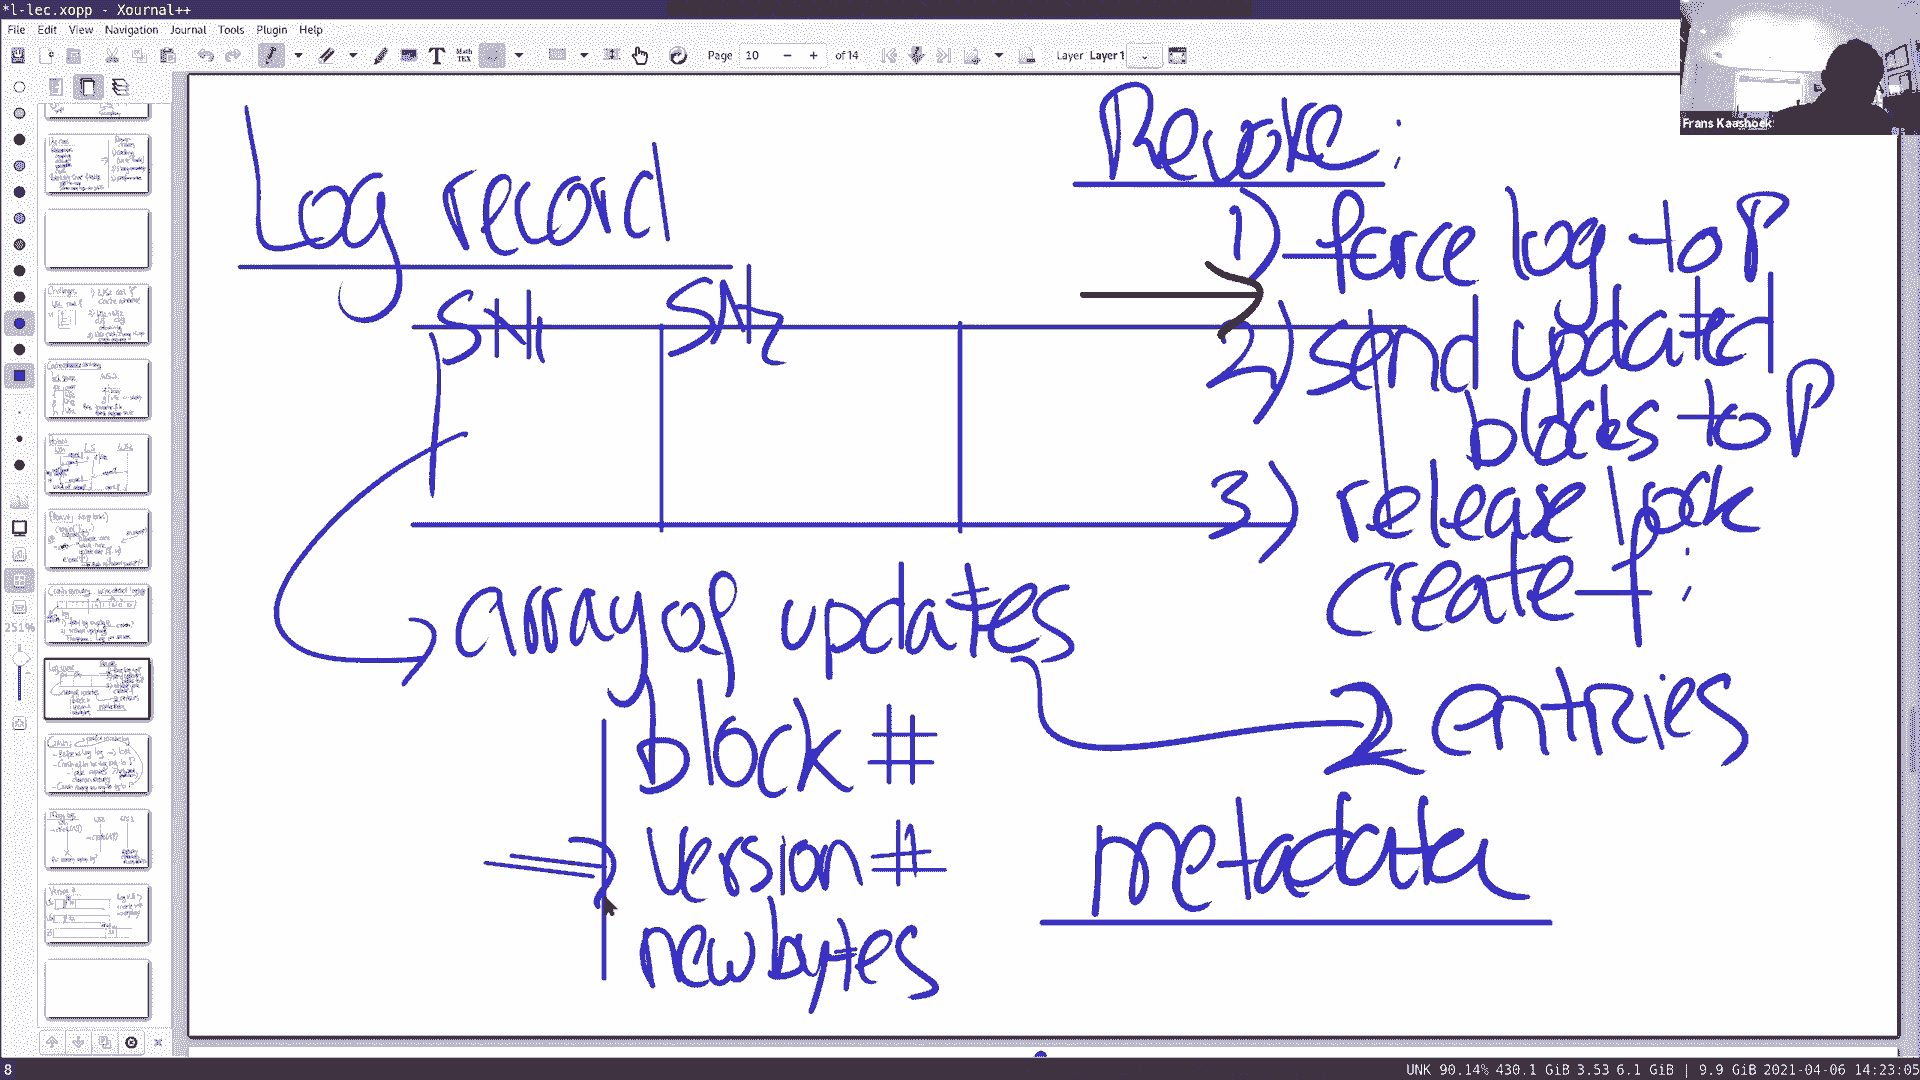 *l-lec.xopp - Xournal++
File Edit View Navigation Journal Tools Plugin Help
Page 10 of 14 Layer Layer 1
Frans Kaashoek
251%
Log record
SN1 SN2
array of updates
block #
version #
new bytes
Revoke:
1) force log to P
2) send updated
blocks to P
3) release lock
create f:
2 entries
metadata
8
UNK 90.14% 430.1 GiB 3.53 6.1 GiB | 9.9 GiB 2021-04-06 14:23:05